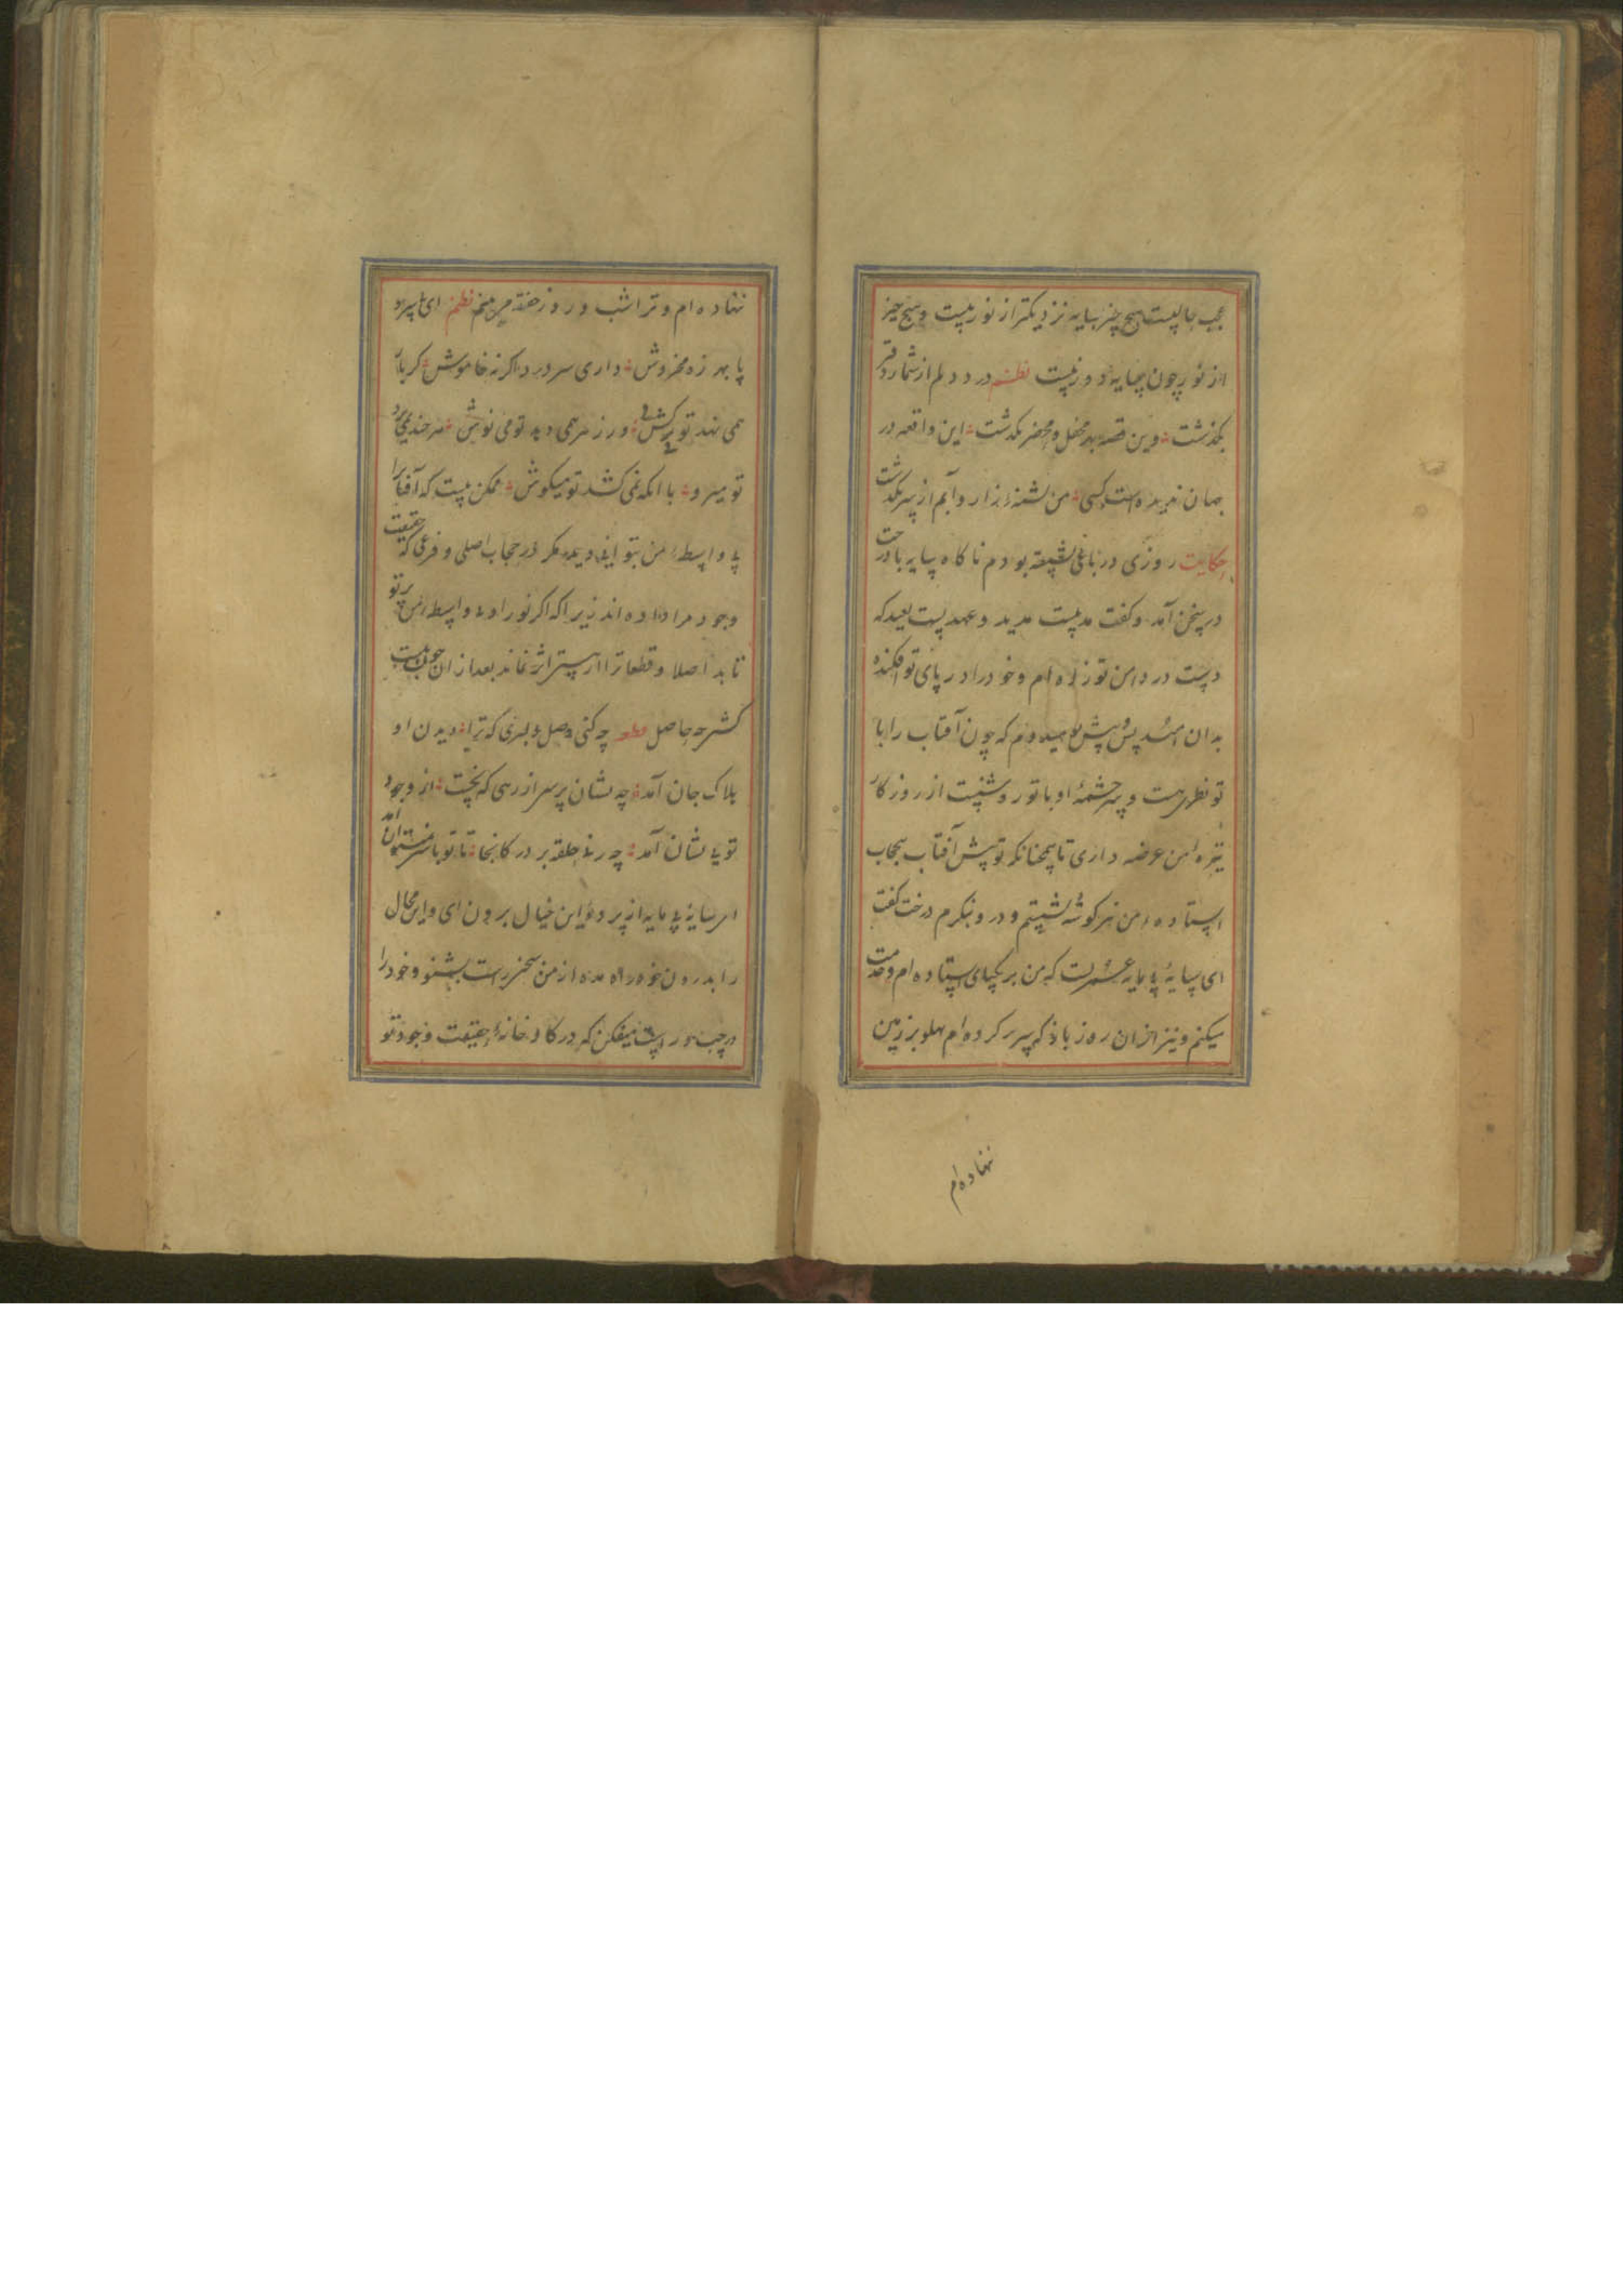 عجب حالیست هیچ چیز بسایه نزدیکتر از نور نیست و هیچ چیز
از نور چون سایه دور نیست نظم درد دلم از شمار دفتر
بگذشت وین قصه بهر محفل و محضر بگذشت این واقعه در
جهان ندیده است کسی من تشنه زار و آبم از سر بگذشت
حکایت روزی در باغی نشسته بودم ناگاه سایه با درخت
در سخن آمد و گفت مدتیست مدید و عهدیست بعید که
دست در دامن تو زده ام و خود را در پای تو افکنده
بدان امید پس و پیش تو میدوم که چون آفتاب را با
تو نظریست و سرچشمه او با تو روشنیست از روزگار
تیره من عرضه داری تا همچنانکه تو پیش آفتاب بیحجاب
استاده من نیز گوشه نشینم و درو نگرم درخت گفت
ای سایه بی مایه عمریست که من بر یکپای استاده ام و خدمت
میکنم و نیز از آن روز باز که سر بر کرده ام پهلو بر زمین
نهاده ام
ننهاده ام و ترا شب و روز خفته می بینم نظم ای بی سر و
پا بهرزه مخروش داری سر درد اگر نه خاموش گر بار
همی نهد تو میکش ور زهر همی دهد تو می نوش هر چند نمی برد
تو میرو با آنکه نمی کشد تو میکوش ممکن نیست که آفتاب را
بی واسطه من بتوانی دید مگر در حجاب اصلی و فرعی که حقیقت
وجود مرا داده اند زیرا که اگر نور او بی واسطه من پرتو
تابد اصلا و قطعا ترا از هستی اثر نماند بعد از آن چون نیست
گشتی چه حاصل چه کنی وصل دلبری که ترا دیدن او
هلاک جان آمد چه نشان پرسی از رهی که نخست از وجود
تو بی نشان آمد چه زنی حلقه بر در کانجا تا تو باشی آمد
ای سایه بی مایه از پرده این خیال برون آی و این محال
را بدرون خود راه مده از من سخن راست بشنو و خود را
در چپ و راست میفکن که در کارخانه حقیقت وجود تو